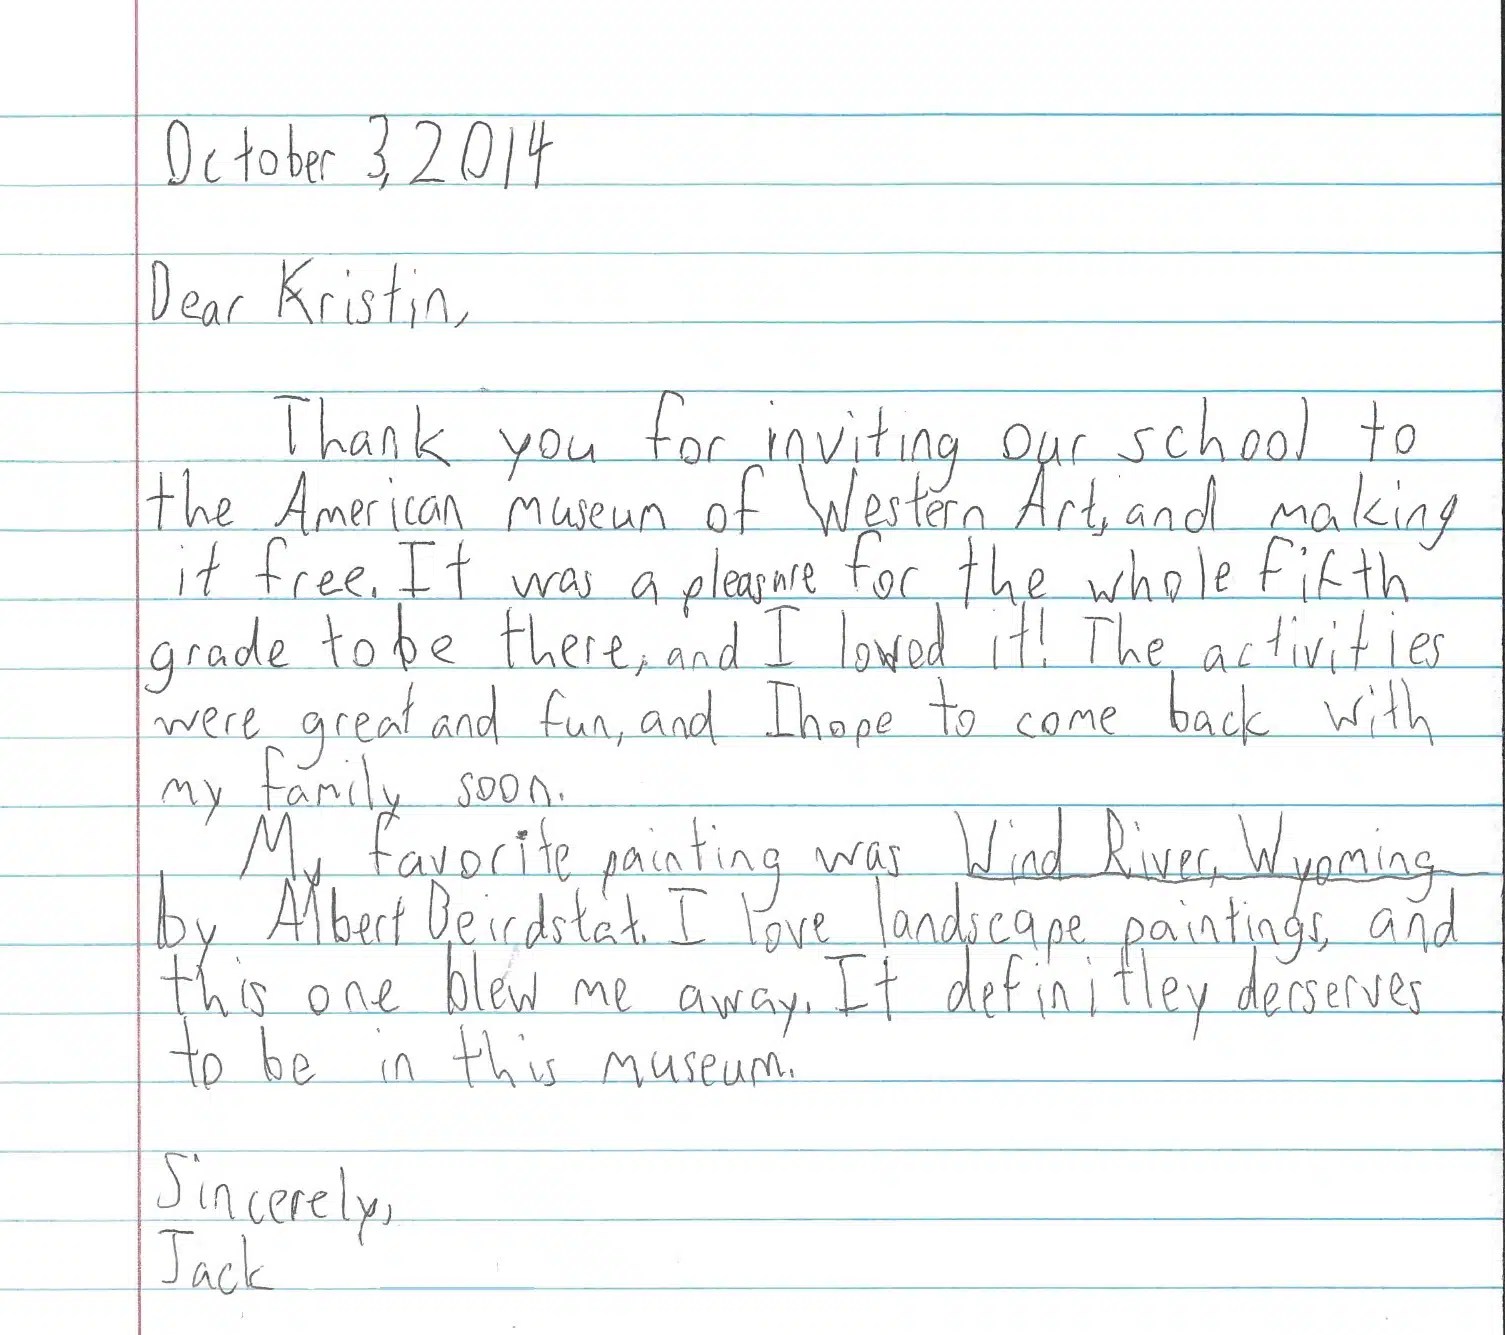 October 3, 2014
Dear Kristin,
Thank you for inviting our school to
the American museum of Western Art, and making
it free. It was a pleasure for the whole fifth
grade to be there, and I loved it! The activities
were great and fun, and I hope to come back with
my family soon.
My favorite painting was Wind River, Wyoming
by Albert Beirdstat. I love landscape paintings, and
this one blew me away. It definitley derserves
to be in this museum.
Sincerely,
Jack